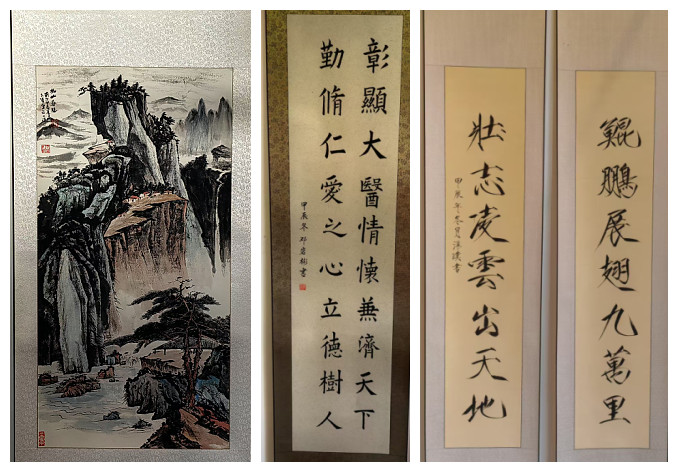 彰顯大醫情懷兼濟天下
勤脩仁愛之心立德樹人
甲辰冬 書
鯤鵬展翅九萬里
壯志凌雲出天地
甲辰年冬 書